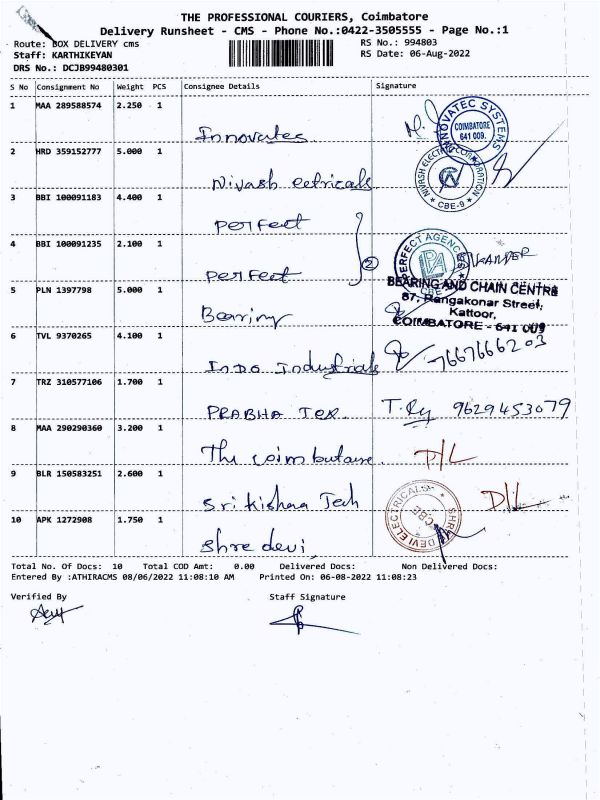 THE PROFESSIONAL COURIERS, Coimbatore
Delivery Runsheet - CMS - Phone No.:0422-3505555 - Page No.:1
Route: BOX DELIVERY cms RS No.: 994803
Staff: KARTHIKEYAN RS Date: 06-Aug-2022
DRS No.: DCJB99480301
S No Consignment No Weight PCS Consignee Details Signature
1 MAA 289588574 2.250 1
Innovates
INNOVATEC SYSTEMS COIMBATORE 641 009.
2 HRD 359152777 5.000 1
Nivash eetricals
NIVASH ELECTRIC CORPORATION CBE-9
3 BBI 100091183 4.400 1
Perfect
4 BBI 100091235 2.100 1
Perfect
2
PERFECT AGENCIES CBE
5 PLN 1397798 5.000 1
Bearing
BEARING AND CHAIN CENTRE
87, Rangakonar Street,
Kattoor,
COIMBATORE - 641 009
6 TVL 9370265 4.100 1
Indo Industrials 7667666203
7 TRZ 310577106 1.700 1
PRABHA Tex. 9629453079
8 MAA 290290360 3.200 1
The coimbutare. D/L
9 BLR 150583251 2.600 1
Sri kishna Tech D/L
10 APK 1272908 1.750 1
Shre devi
SHRI DEVI ELECTRICALS CBE
Total No. Of Docs: 10 Total COD Amt: 0.00 Delivered Docs: Non Delivered Docs:
Entered By :ATHIRACMS 08/06/2022 11:08:10 AM Printed On: 06-08-2022 11:08:23
Verified By Staff Signature